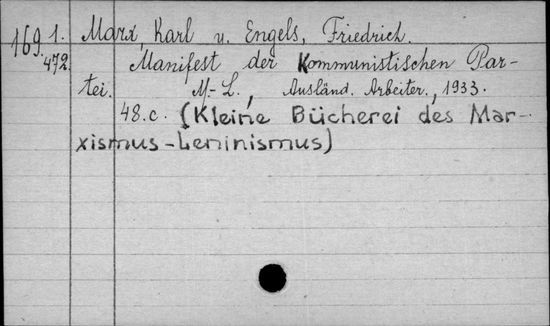 169.1. Marx, Karl u. Engels, Friedrich.
472. Manifest der Kommunistischen Par-
tei. M.-L., Ausländ. Arbeiter., 1933.
48.c. (Kleine Bücherei des Mar-
xismus-Leninismus)